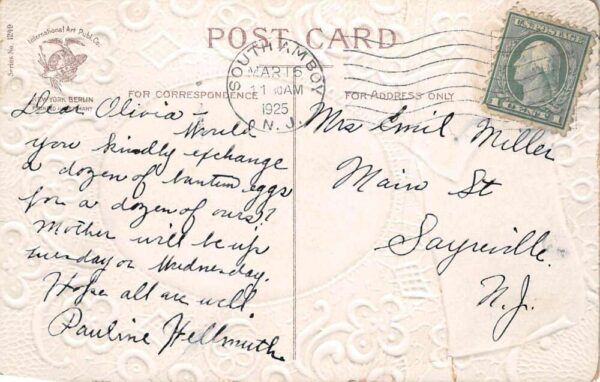 Series No. 1209
International Art Publ. Co.
NEW YORK BERLIN
POST CARD
FOR CORRESPONDENCE
FOR ADDRESS ONLY
SOUTH AMBOY
MAR 16
11 30AM
1925
N.J.
U.S. POSTAGE
Dear Olivia –
Would
you kindly exchange
a dozen of bantum eggs
for a dozen of ours?
Mother will be up
tuesday or Wednesday.
Hope all are well
Pauline Hellmuth
Mrs Emil Miller
Main St
Sayreville.
N.J.